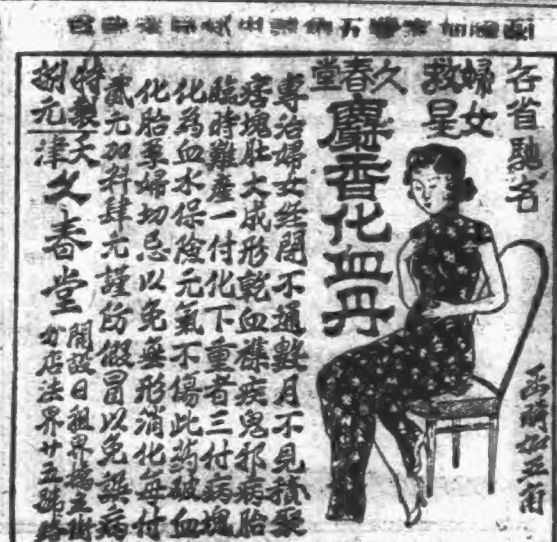 各省馳名
婦女
救星
久春堂
麝香化血丹
專治婦女經閉不通數月不見積聚
痞塊肚大成形乾血襍疾鬼邪病胎
臨時難產一付化下重者三付病塊
化為血水保險元氣不傷此葯破血
化胎孕婦切忌以免無形消化每付
貳元加料肆元謹防假冒以免誤病
特製
捌元
天津久春堂
開設日租界橋立街
分店法界廿五號路
函購加五角